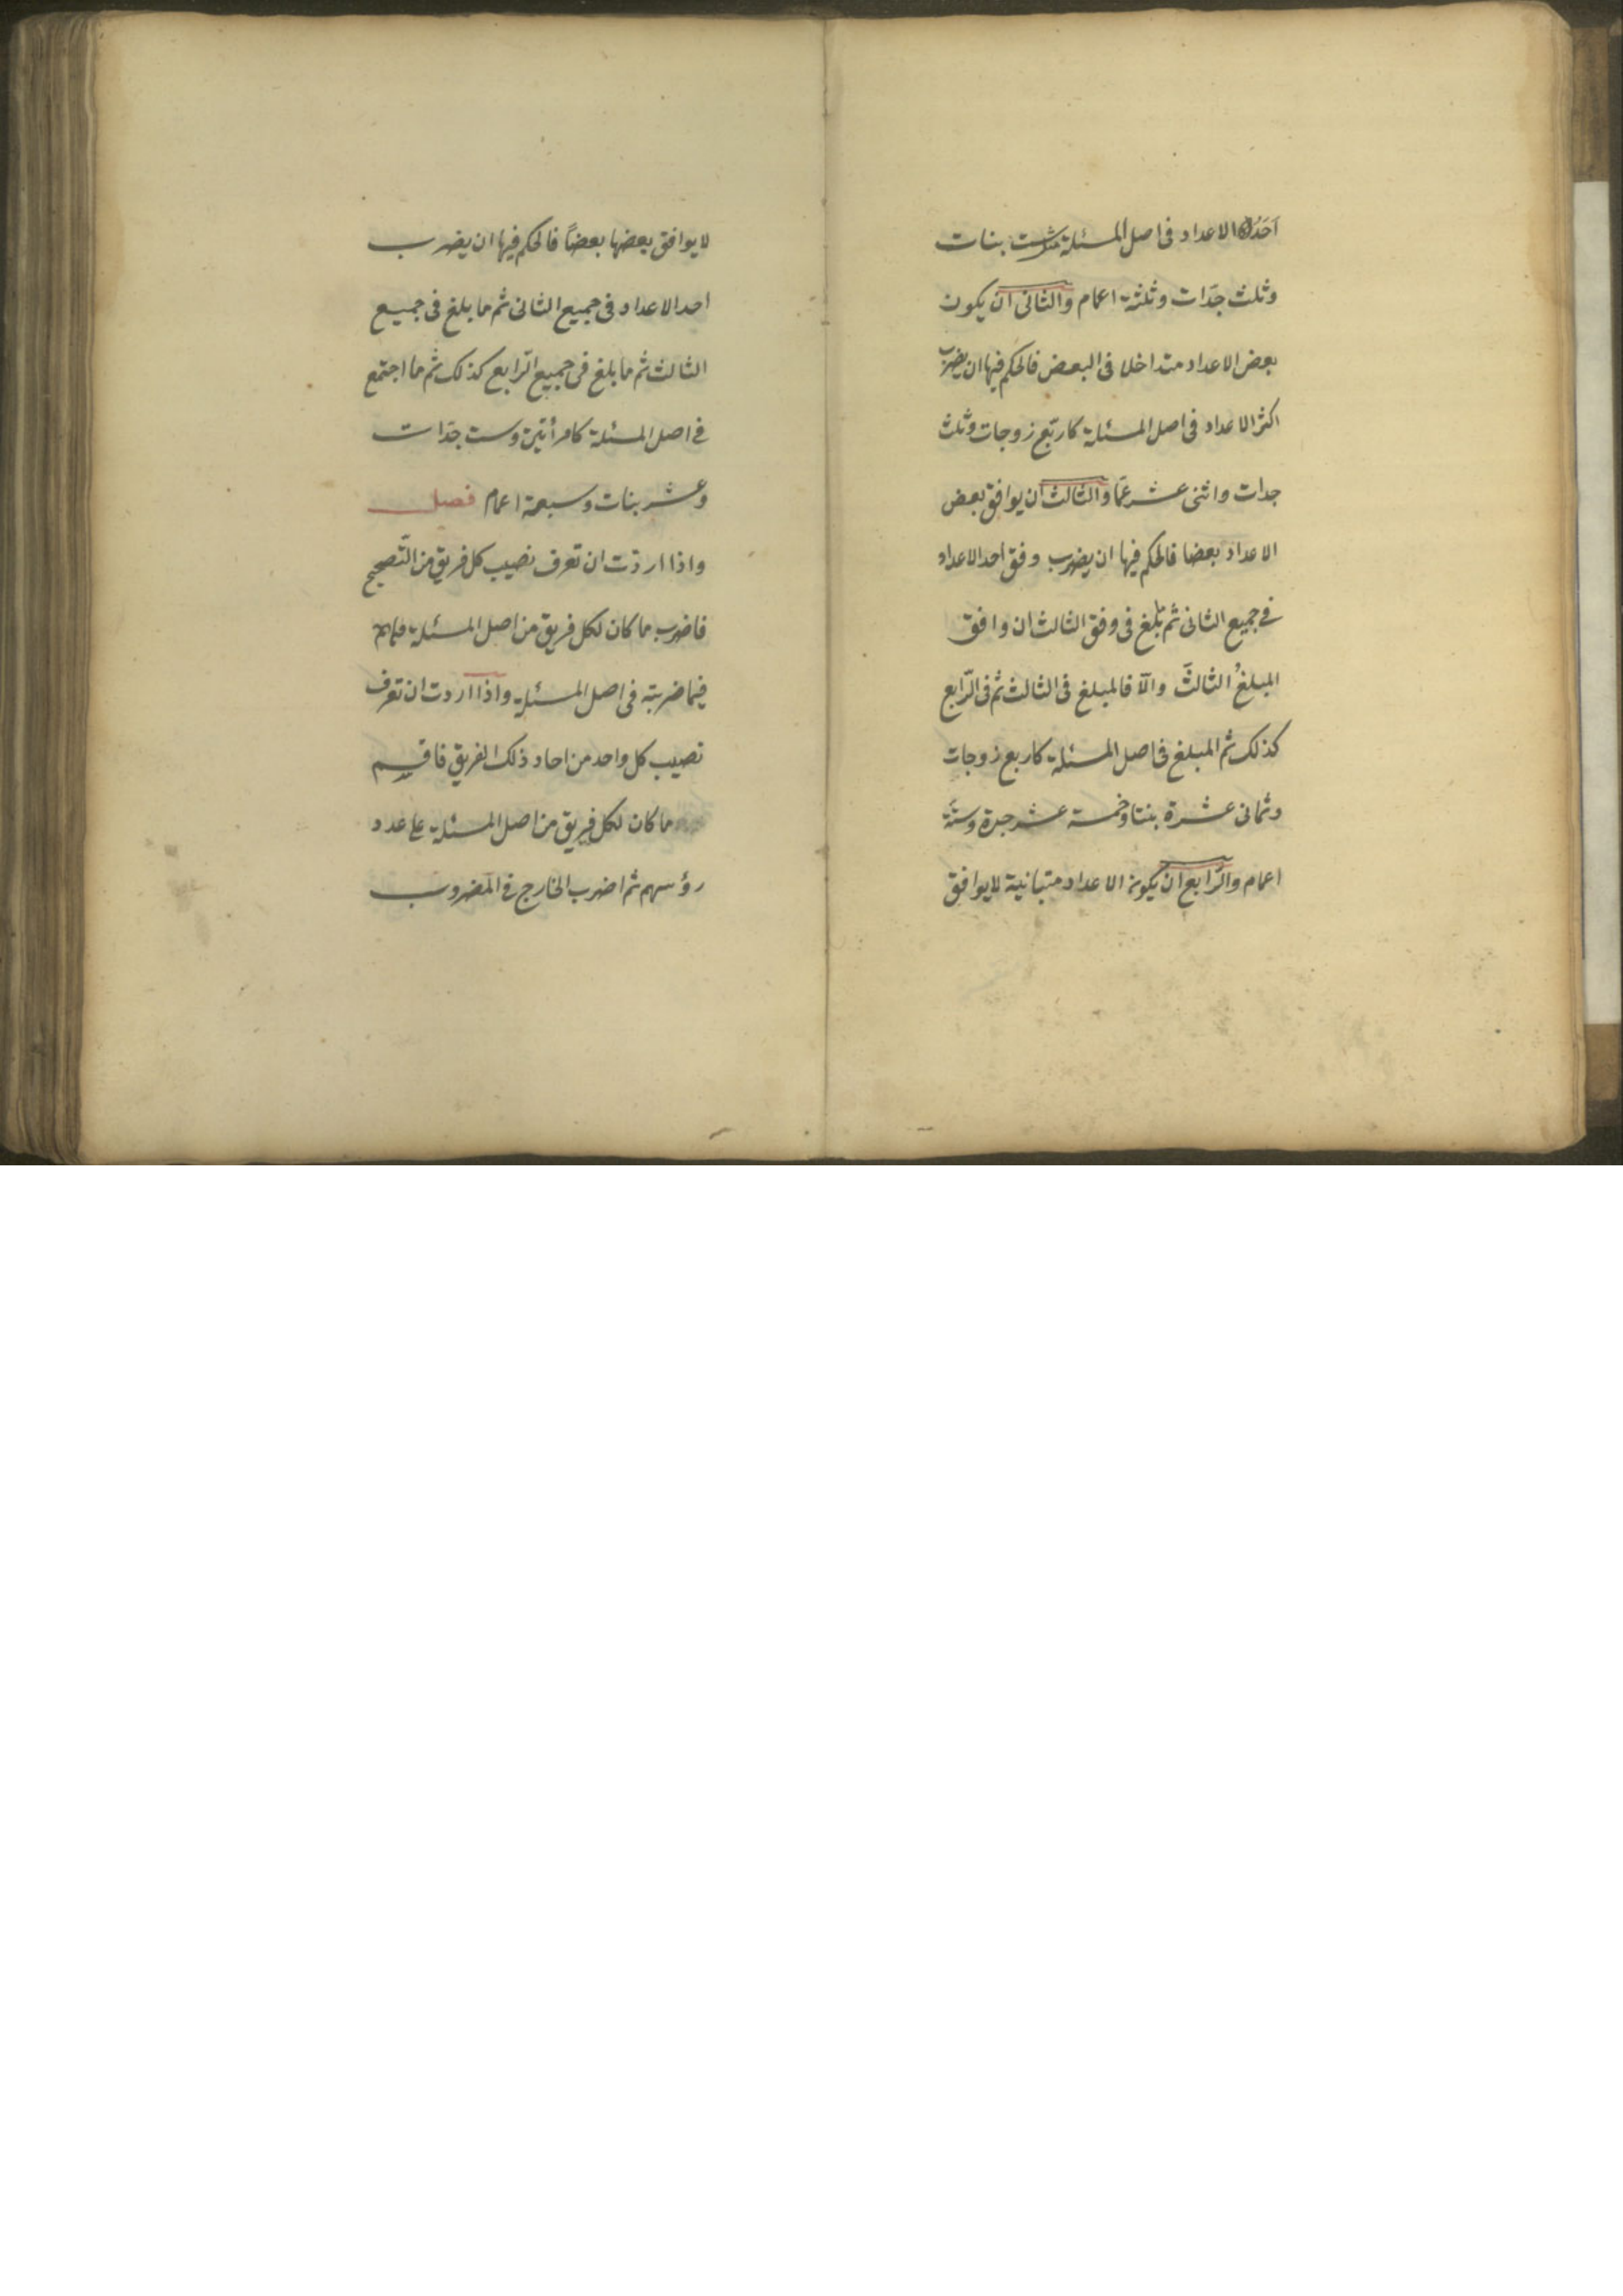 اَحَدُ الاعداد فى اصل المسئلة مثل ست بنات
وثلث جدّات وثلثة اعمام والثانى ان يكون
بعض الاعداد متداخلا فى البعض فالحكم فيها ان يضرب
اكثر الاعداد فى اصل المسئلة كاربع زوجات وثلث
جدات واثنى عشر عمّا والثالث ان يوافق بعض
الاعداد بعضا فالحكم فيها ان يضرب وفق احد الاعداد
فى جميع الثانى ثم بلغ فى وفق الثالث ان وافق
المبلغُ الثالثَ والّا فالمبلغ فى الثالث ثم فى الرّابع
كذلك ثم المبلغ فى اصل المسئلة كاربع زوجات
وثمانى عشرة بنتا وخمسة عشر جدة وستّة
اعمام والرّابع ان يكون الاعداد متبانية لا يوافق
لا يوافق بعضها بعضاً فالحكم فيها ان يضرب
احد الاعداد فى جميع الثانى ثم ما بلغ فى جميع
الثالث ثم ما بلغ فى جميع الرّابع كذلك ثم ما اجتمع
فى اصل المسئلة كامرأتين وست جدّات
وعشر بنات وسبعة اعمام فصل
واذا اردت ان تعرف نصيب كل فريق من التّصحيح
فاضرب ما كان لكل فريق من اصل المسئلة
فيما ضربته فى اصل المسئلة واذا اردت ان تعرف
نصيب كل واحد من احاد ذلك الفريق فاقسم
ما كان لكل فريق من اصل المسئلة على عدد
رؤسهم ثم اضرب الخارج فى المضروب